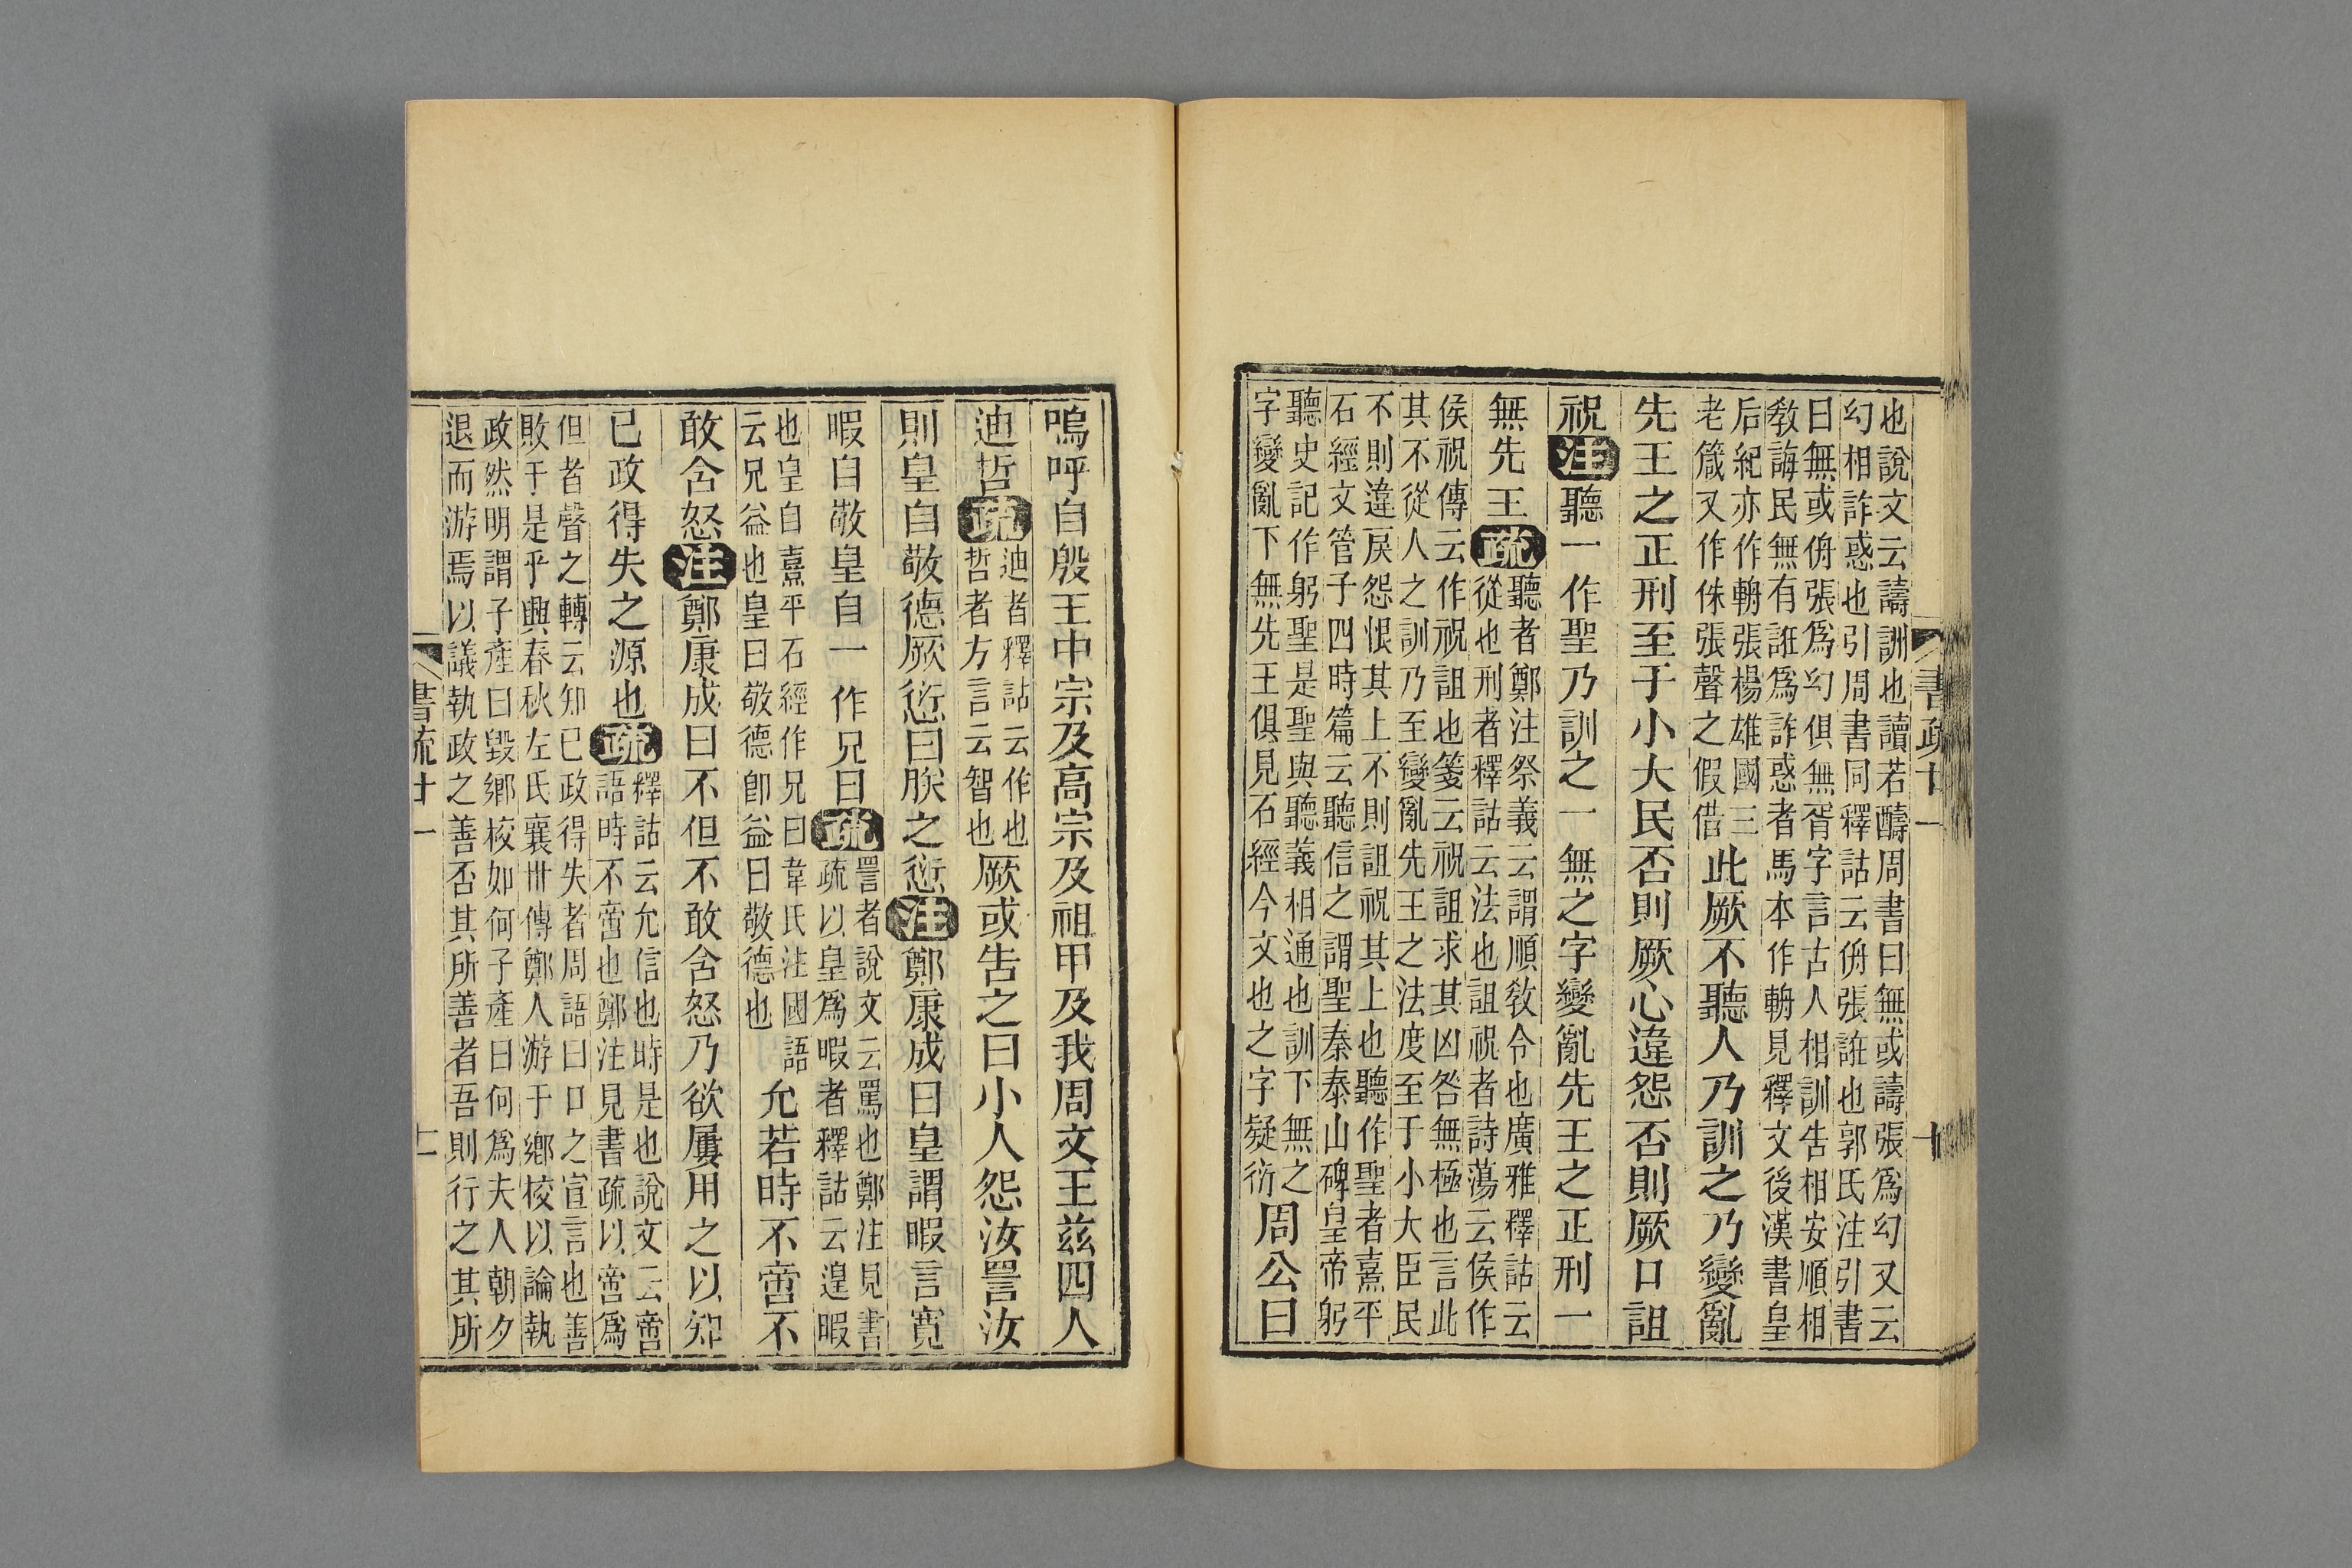 書疏廿一　十
也說文云譸訓也讀若醻周書曰無或譸張爲幻又云
幻相詐惑也引周書同釋詁云侜張誑也郭氏注引書
曰無或侜張爲幻俱無胥字言古人相訓告相安順相
教誨民無有誑爲詐惑者馬本作輈見釋文後漢書皇
后紀亦作輈張楊雄國三
老箴又作侏張聲之假借
此厥不聽人乃訓之乃變亂
先王之正刑至于小大民否則厥心違怨否則厥口詛
祝注聽一作聖乃訓之一無之字變亂先王之正刑一
無先王疏
聽者鄭注祭義云謂順教令也廣雅釋詁云
從也刑者釋詁云法也詛祝者詩蕩云侯作
侯祝傳云作祝詛也箋云祝詛求其凶咎無極也言此
其不從人之訓乃至變亂先王之法度至于小大臣民
不則違戾怨恨其上不則詛祝其上也聽作聖者熹平
石經文管子四時篇云聽信之謂聖秦泰山碑皇帝躬
聽史記作躬聖是聖與聽義相通也訓下無之
字變亂下無先王俱見石經今文也之字疑衍
周公曰
嗚呼自殷王中宗及高宗及祖甲及我周文王茲四人
迪哲疏
迪者釋詁云作也
哲者方言云智也
厥或告之曰小人怨汝詈汝
則皇自敬德厥愆曰朕之愆注鄭康成曰皇謂暇言寬
暇自敬皇自一作兄曰疏
詈者說文云罵也鄭注見書
疏以皇爲暇者釋詁云遑暇
也皇自熹平石經作兄曰韋氏注國語
云兄益也皇曰敬德卽益曰敬德也
允若時不啻不
敢含怒注鄭康成曰不但不敢含怒乃欲屢用之以知
已政得失之源也疏
釋詁云允信也時是也說文云啻
語時不啻也鄭注見書疏以啻爲
但者聲之轉云知已政得失者周語曰口之宣言也善
敗于是乎興春秋左氏襄卅傳鄭人游于鄉校以論執
政然明謂子產曰毀鄉校如何子產曰何爲夫人朝夕
退而游焉以議執政之善否其所善者吾則行之其所
書疏廿一　十一